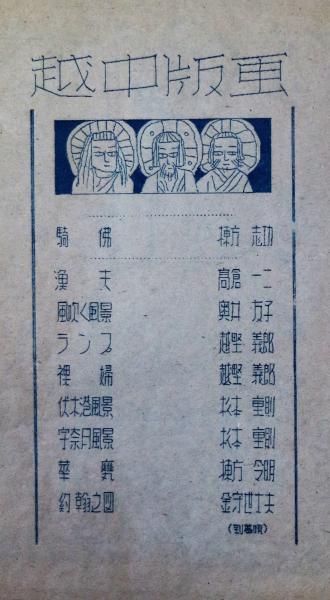 越中版画
騎佛 棟方 志功
漁夫 高倉 一二
風吹く風景 奥井 方子
ランプ 越野 義郎
裸婦 越野 義郎
伏木港風景 松本 重則
宇奈月風景 松本 重則
華嚴 棟方 今明
約翰之図 金守世士夫
(到着順)